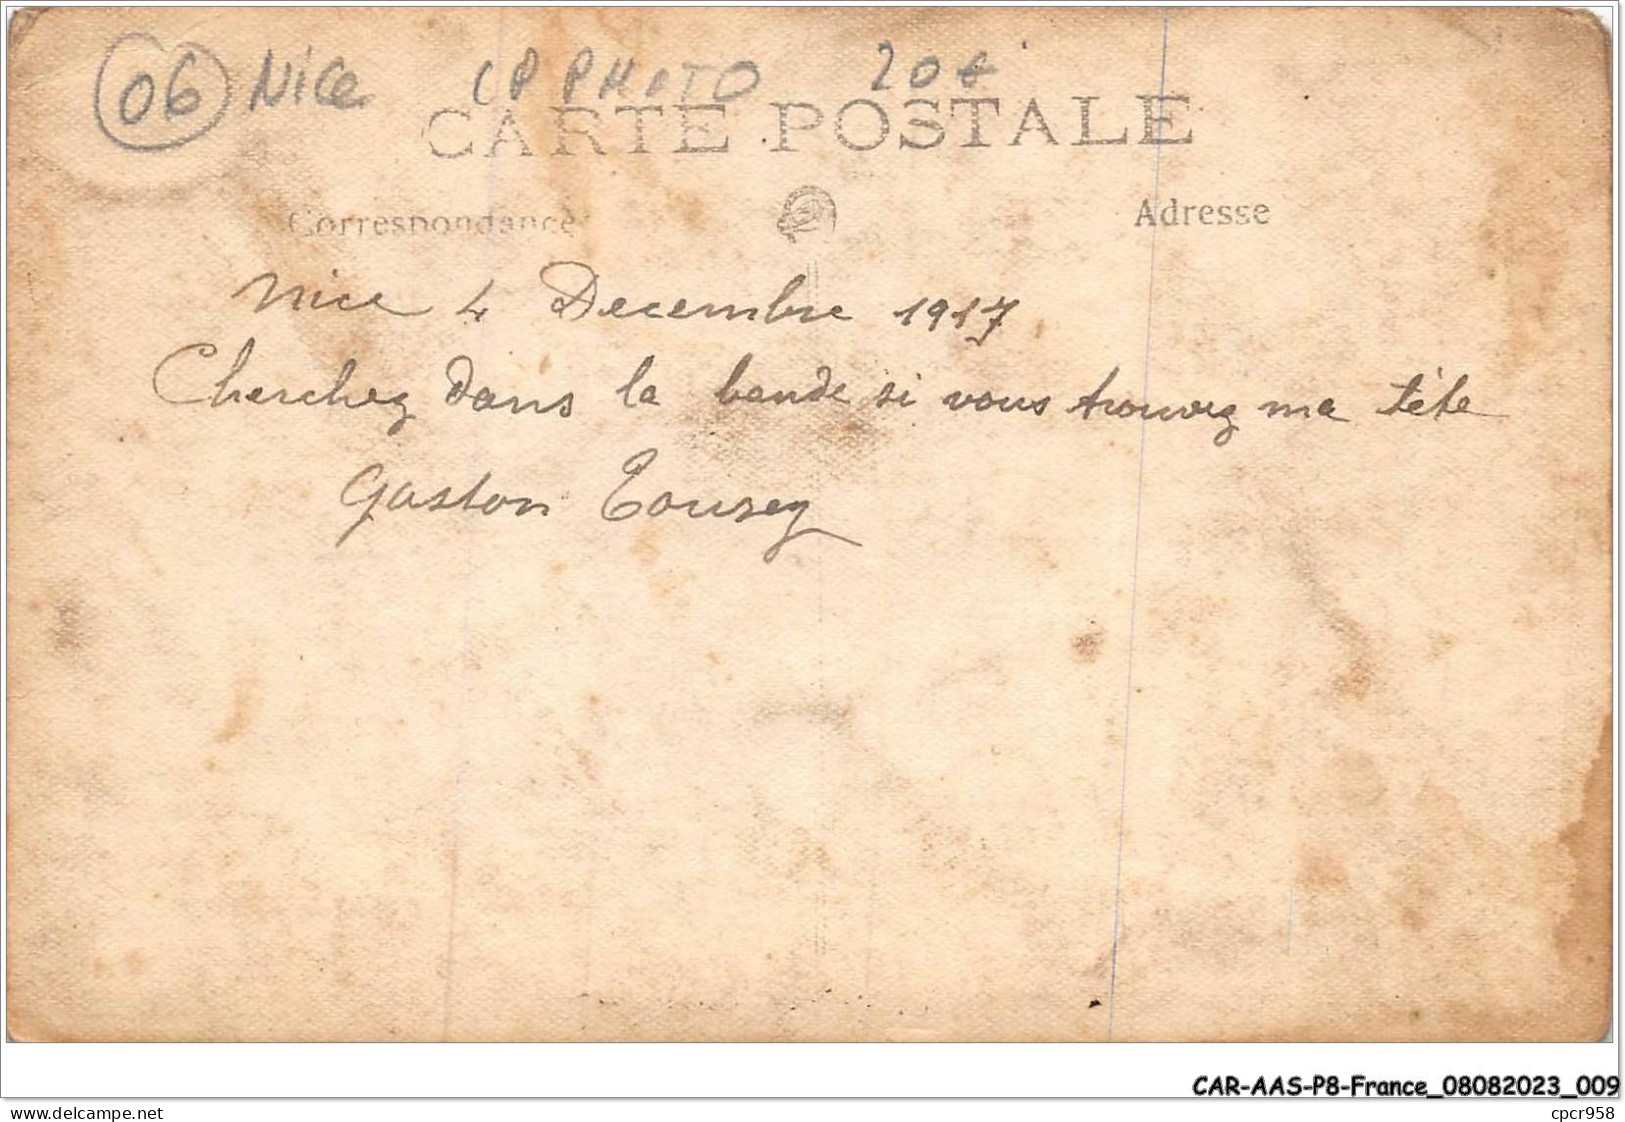 06 Nice CP PHOTO 20€
CARTE POSTALE
Correspondance
Adresse
Nice 4 Decembre 1917
Cherchez dans la bande si vous trouvez ma tête
Gaston
CAR-AAS-P8-France_08082023_009
delcampe.net
cpcr958